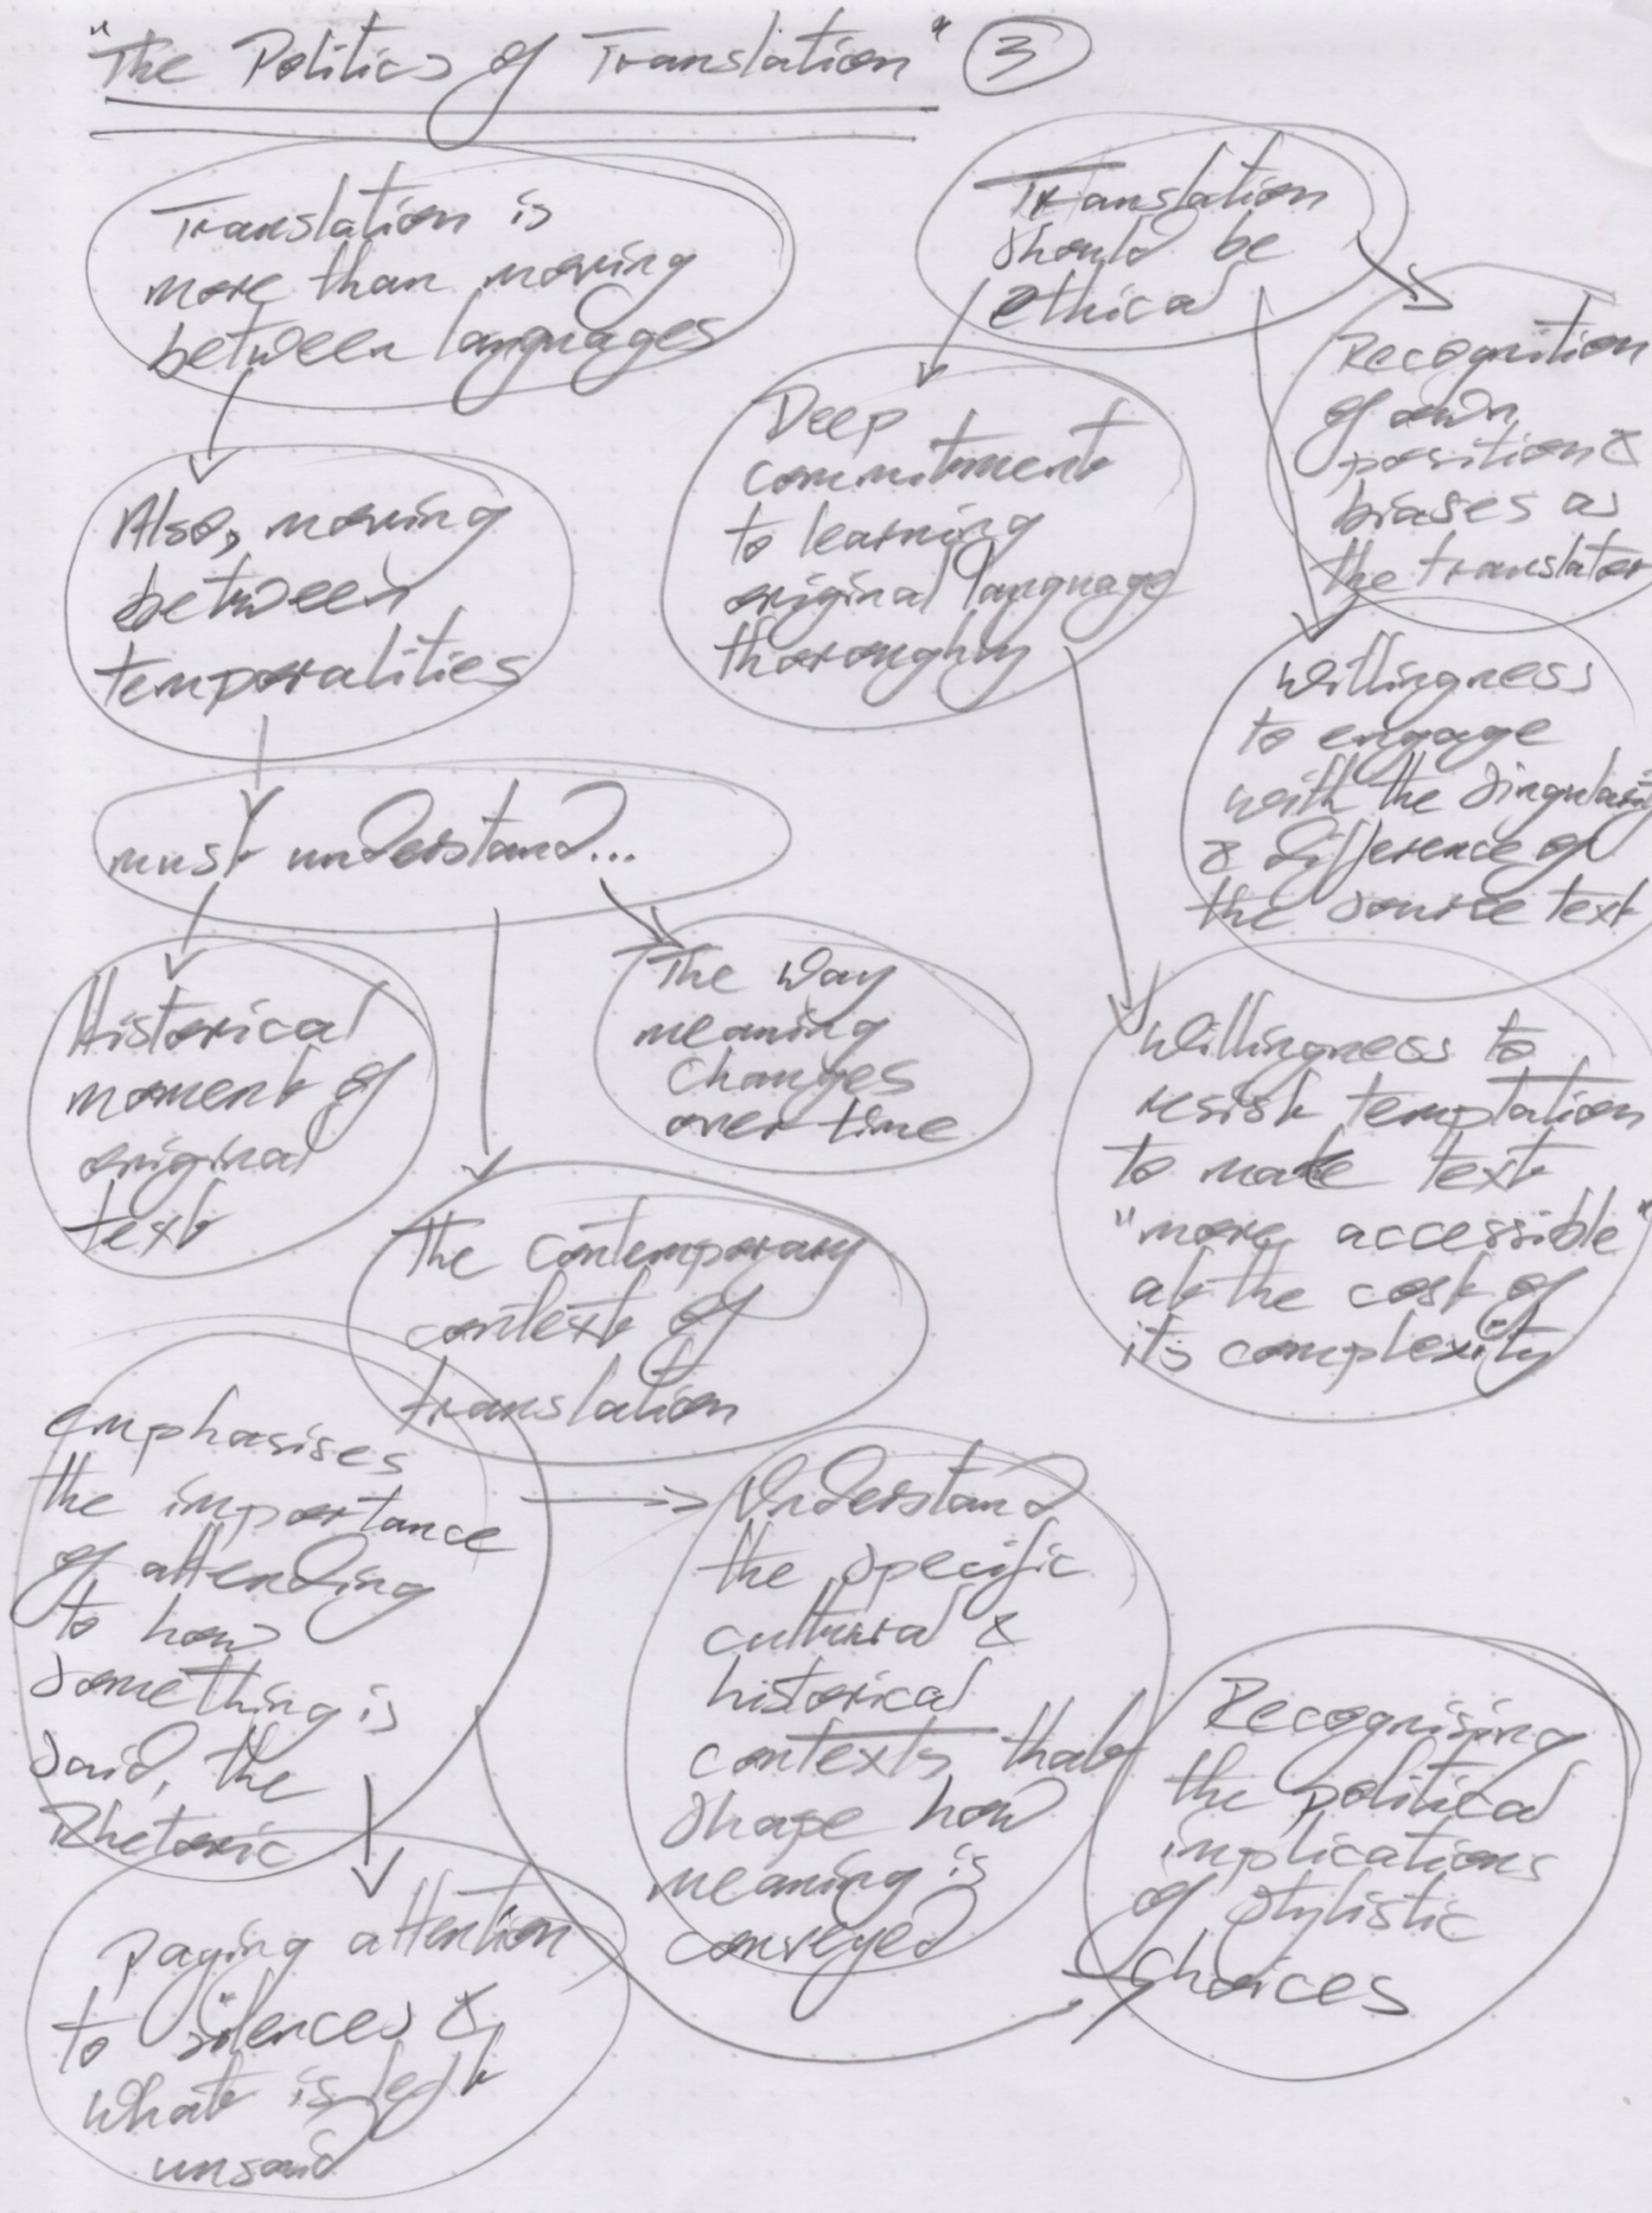 "The Politics of Translation" 3
Translation is
more than moving
between languages
Also, moving
between
temporalities
must understand...
Historical
moment of
original
text
The contemporary
context of
translation
The way
meaning
changes
over time
Translation
should be
ethical
Deep
commitment
to learning
original language
thoroughly
Recognition
of own
position &
biases as
the translator
Willingness
to engage
with the singularity
& difference of
the source text
Willingness to
resist temptation
to make text
"more accessible"
at the cost of
its complexity
Emphasises
the importance
of attending
to how
something is
said, the
Rhetoric
Paying attention
to silences &
what is left
unsaid
Understand
the specific
cultural &
historical
contexts that
shape how
meaning is
conveyed
Recognising
the political
implications
of stylistic
choices